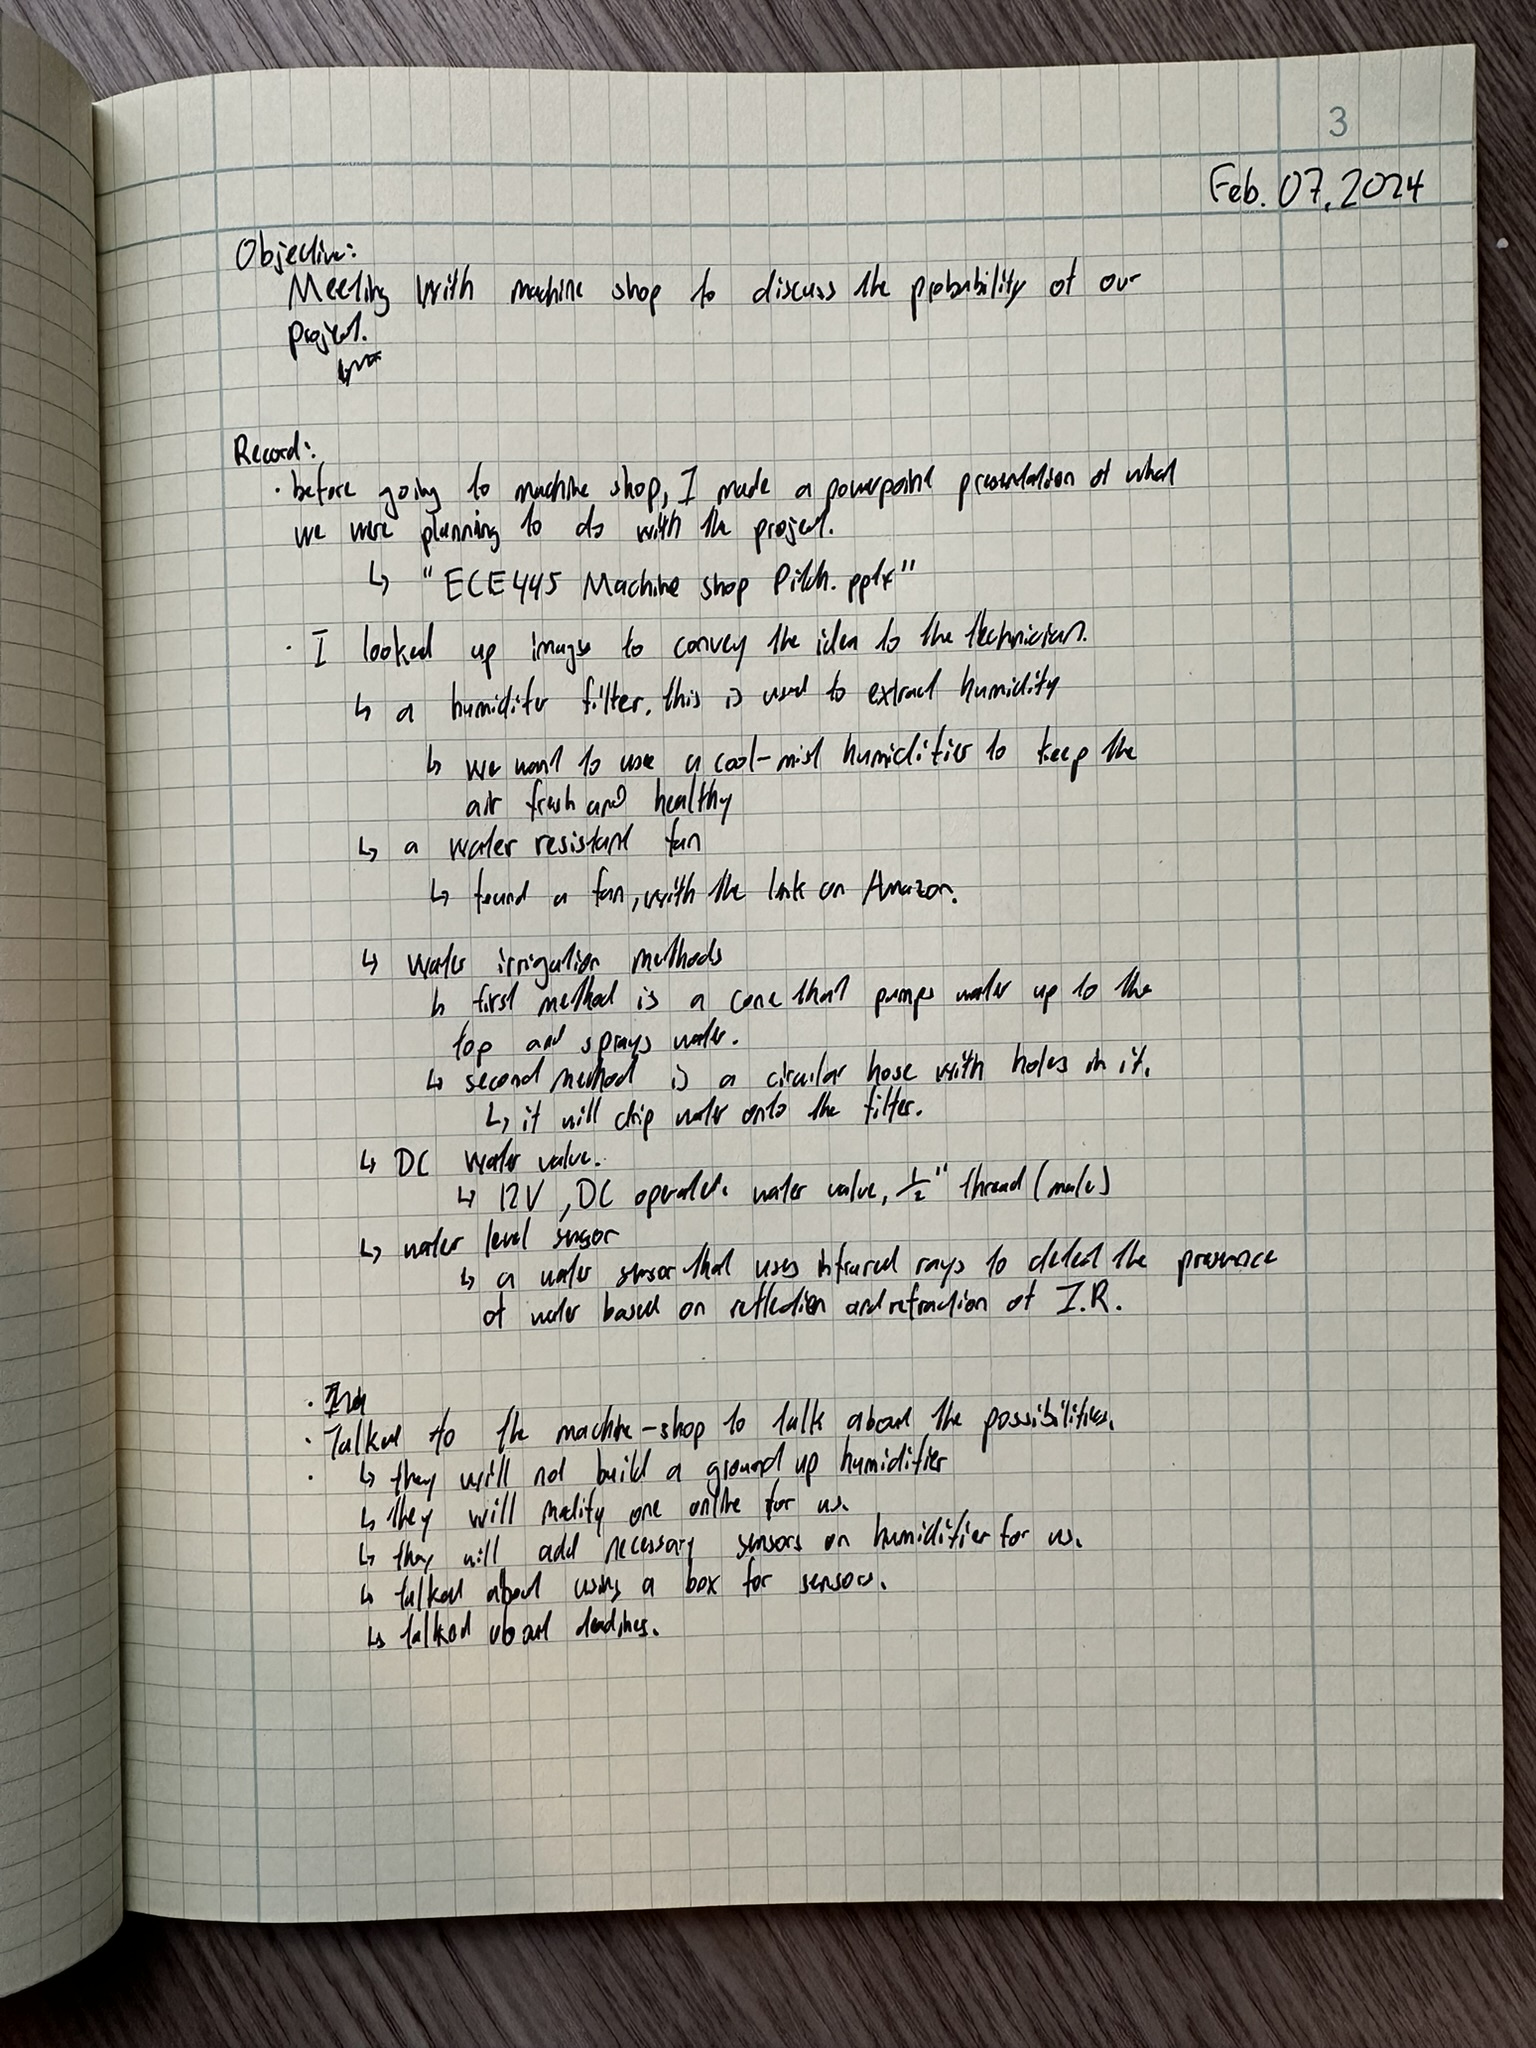 3
Feb. 07, 2024
Objective:
Meeting with machine shop to discuss the probability of our
project.
Record:
· before going to machine shop, I made a powerpoint presentation of what
we were planning to do with the project.
↳ "ECE445 Machine shop Pitch. pptx"
· I looked up images to convey the idea to the technician.
↳ a humidifer filter. this is used to extract humidity
↳ we want to use a cool-mist humidifier to keep the
air fresh and healthy
↳ a water resistant fan
↳ found a fan, with the link on Amazon.
↳ water irrigation methods
↳ first method is a cone that pumps water up to the
top and sprays water.
↳ second method is a circular hose with holes in it.
↳ it will drip water onto the filter.
↳ DC water valve.
↳ 12V, DC operated water valve, 1/2" thread (male)
↳ water level sensor
↳ a water sensor that uses infrared rays to detect the presence
of water based on reflection and refraction of I.R.
·
· Talked to the machine-shop to talk about the possibilities.
· ↳ they will not build a ground up humidifier
↳ they will modify one online for us.
↳ they will add necessary sensors on humidifier for us.
↳ talked about using a box for sensors.
↳ talked about deadlines.